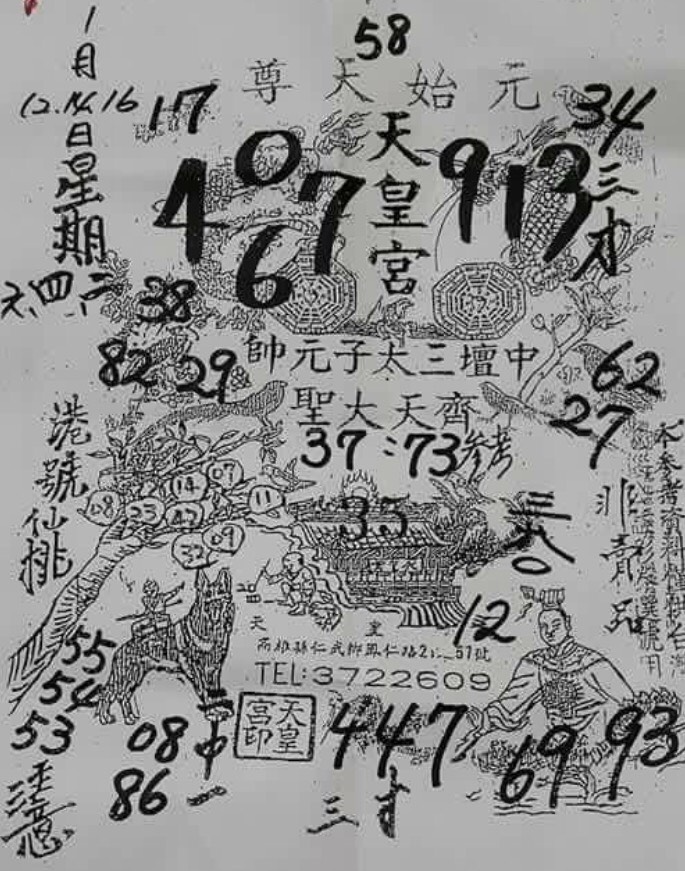 1月
12.14.16
日星期
六.四.二
58
元始天尊
17
34
天皇宮
4067
913
三才
38
82 29
中壇三太子元帥
齊天大聖
62
27
37:73參考
港號仙桃
14 07
08 23 42 11
32 09
35
三八〇
非賣品
12
天皇
TEL:3722609
天皇宮印
55
54
53
注意
08
86
二中一
447
三才
69 93